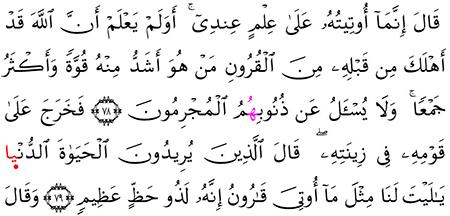 قَالَ إِنَّمَآ أُوتِيتُهُۥ عَلَىٰ عِلْمٍ عِندِىٓ ۚ أَوَلَمْ يَعْلَمْ أَنَّ ٱللَّهَ قَدْ
أَهْلَكَ مِن قَبْلِهِۦ مِنَ ٱلْقُرُونِ مَنْ هُوَ أَشَدُّ مِنْهُ قُوَّةً وَأَكْثَرُ
جَمْعًا ۚ وَلَا يُسْـَٔلُ عَن ذُنُوبِهِمُ ٱلْمُجْرِمُونَ ﴿٧٨﴾ فَخَرَجَ عَلَىٰ
قَوْمِهِۦ فِى زِينَتِهِۦ ۖ قَالَ ٱلَّذِينَ يُرِيدُونَ ٱلْحَيَوٰةَ ٱلدُّنْيَا
يَٰلَيْتَ لَنَا مِثْلَ مَآ أُوتِىَ قَٰرُونُ إِنَّهُۥ لَذُو حَظٍّ عَظِيمٍ ﴿٧٩﴾ وَقَالَ